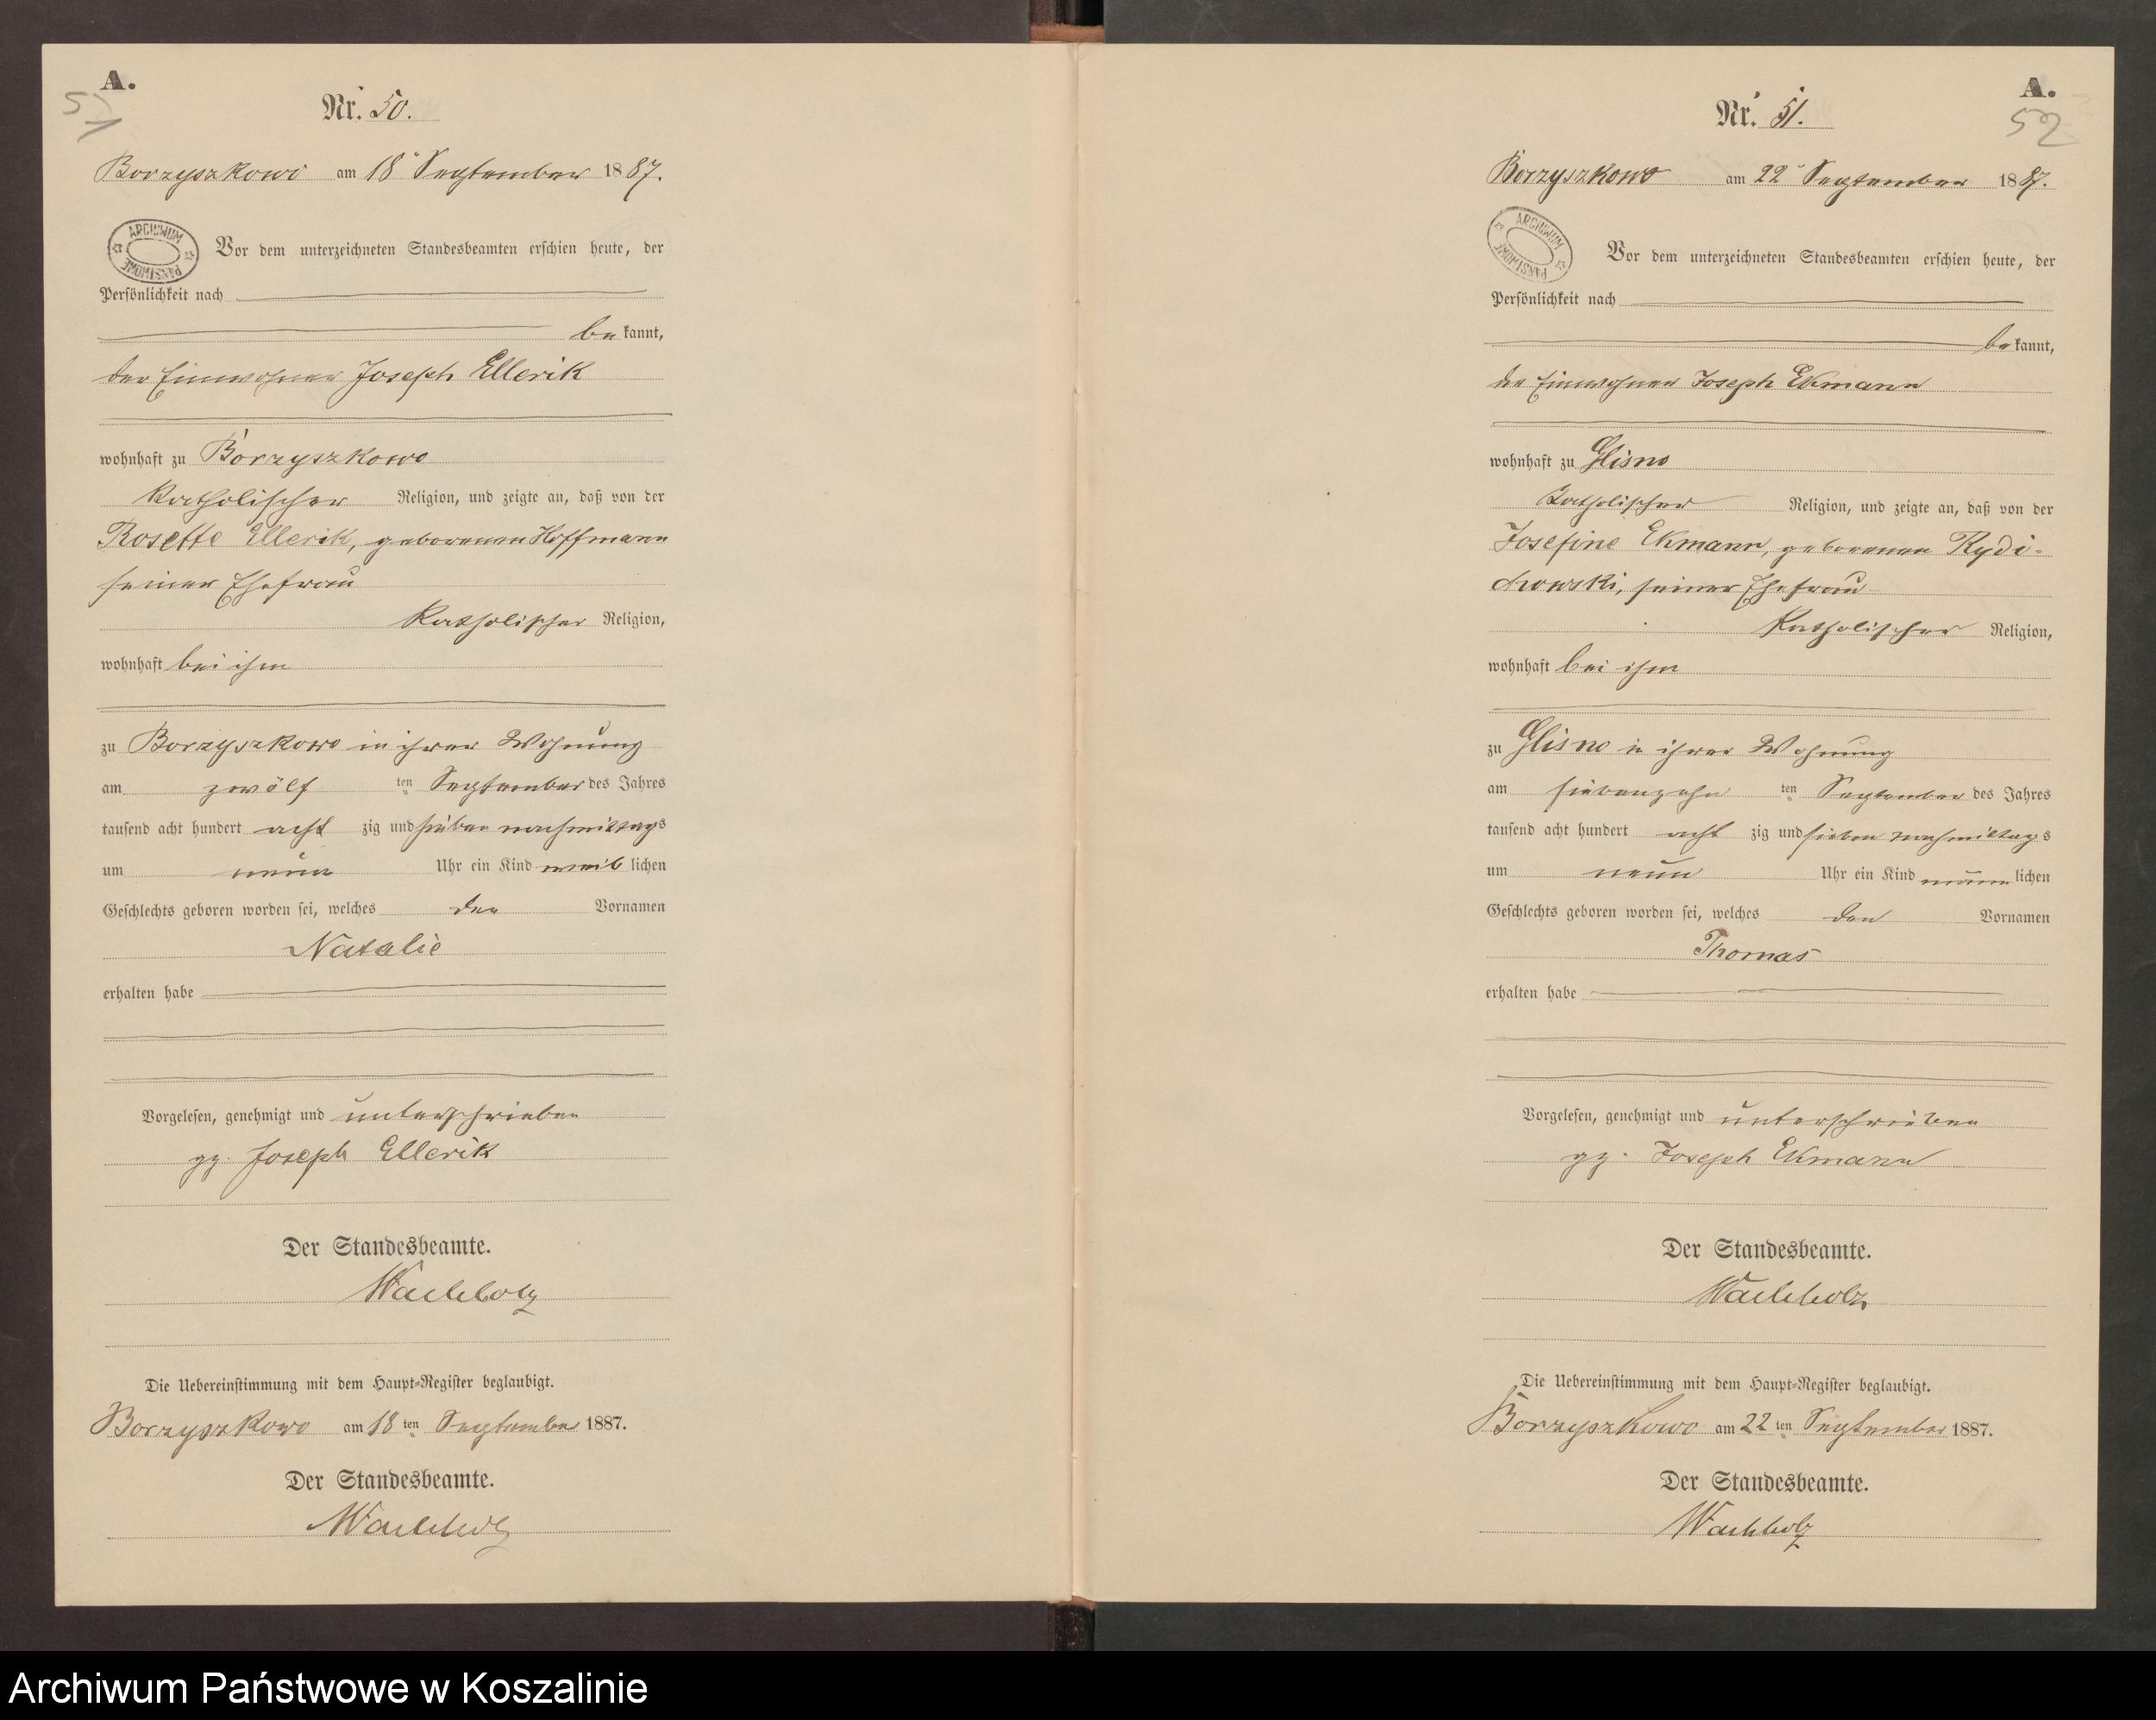 A.
51
Nr. 50.
Borzyszkowo am 18 September 1887.
ARCHIWUM PAŃSTWOWE
Vor dem unterzeichneten Standesbeamten erschien heute, der
Persönlichkeit nach
bekannt,
der Einwohner Joseph Ellerik
wohnhaft zu Borzyszkowo
katholischer Religion, und zeigte an, daß von der
Rosette Ellerik, geborenen Hoffmann
seiner Ehefrau
katholischer Religion,
wohnhaft bei ihm
zu Borzyszkowo in ihrer Wohnung
am zwölf ten September des Jahres
tausend acht hundert acht zig und sieben nachmittags
um neun Uhr ein Kind weiblichen
Geschlechts geboren worden sei, welches den Vornamen
Natalie
erhalten habe
Vorgelesen, genehmigt und unterschrieben
gz. Joseph Ellerik
Der Standesbeamte.
Wachholz
Die Uebereinstimmung mit dem Haupt-Register beglaubigt.
Borzyszkowo am 18ten September 1887.
Der Standesbeamte.
Wachholz
A.
52
Nr. 51.
Borzyszkowo am 22 September 1887.
ARCHIWUM PAŃSTWOWE
Vor dem unterzeichneten Standesbeamten erschien heute, der
Persönlichkeit nach
bekannt,
der Einwohner Joseph Ekmann
wohnhaft zu Glisno
katholischer Religion, und zeigte an, daß von der
Josefine Ekmann, geborenen Rydi-
chowski, seiner Ehefrau
katholischer Religion,
wohnhaft bei ihm
zu Glisno in ihrer Wohnung
am siebenzehn ten September des Jahres
tausend acht hundert acht zig und sieben nachmittags
um neun Uhr ein Kind männlichen
Geschlechts geboren worden sei, welches den Vornamen
Thomas
erhalten habe
Vorgelesen, genehmigt und unterschrieben
gz. Joseph Ekmann
Der Standesbeamte.
Wachholz
Die Uebereinstimmung mit dem Haupt-Register beglaubigt.
Borzyszkowo am 22ten September 1887.
Der Standesbeamte.
Wachholz
Archiwum Państwowe w Koszalinie